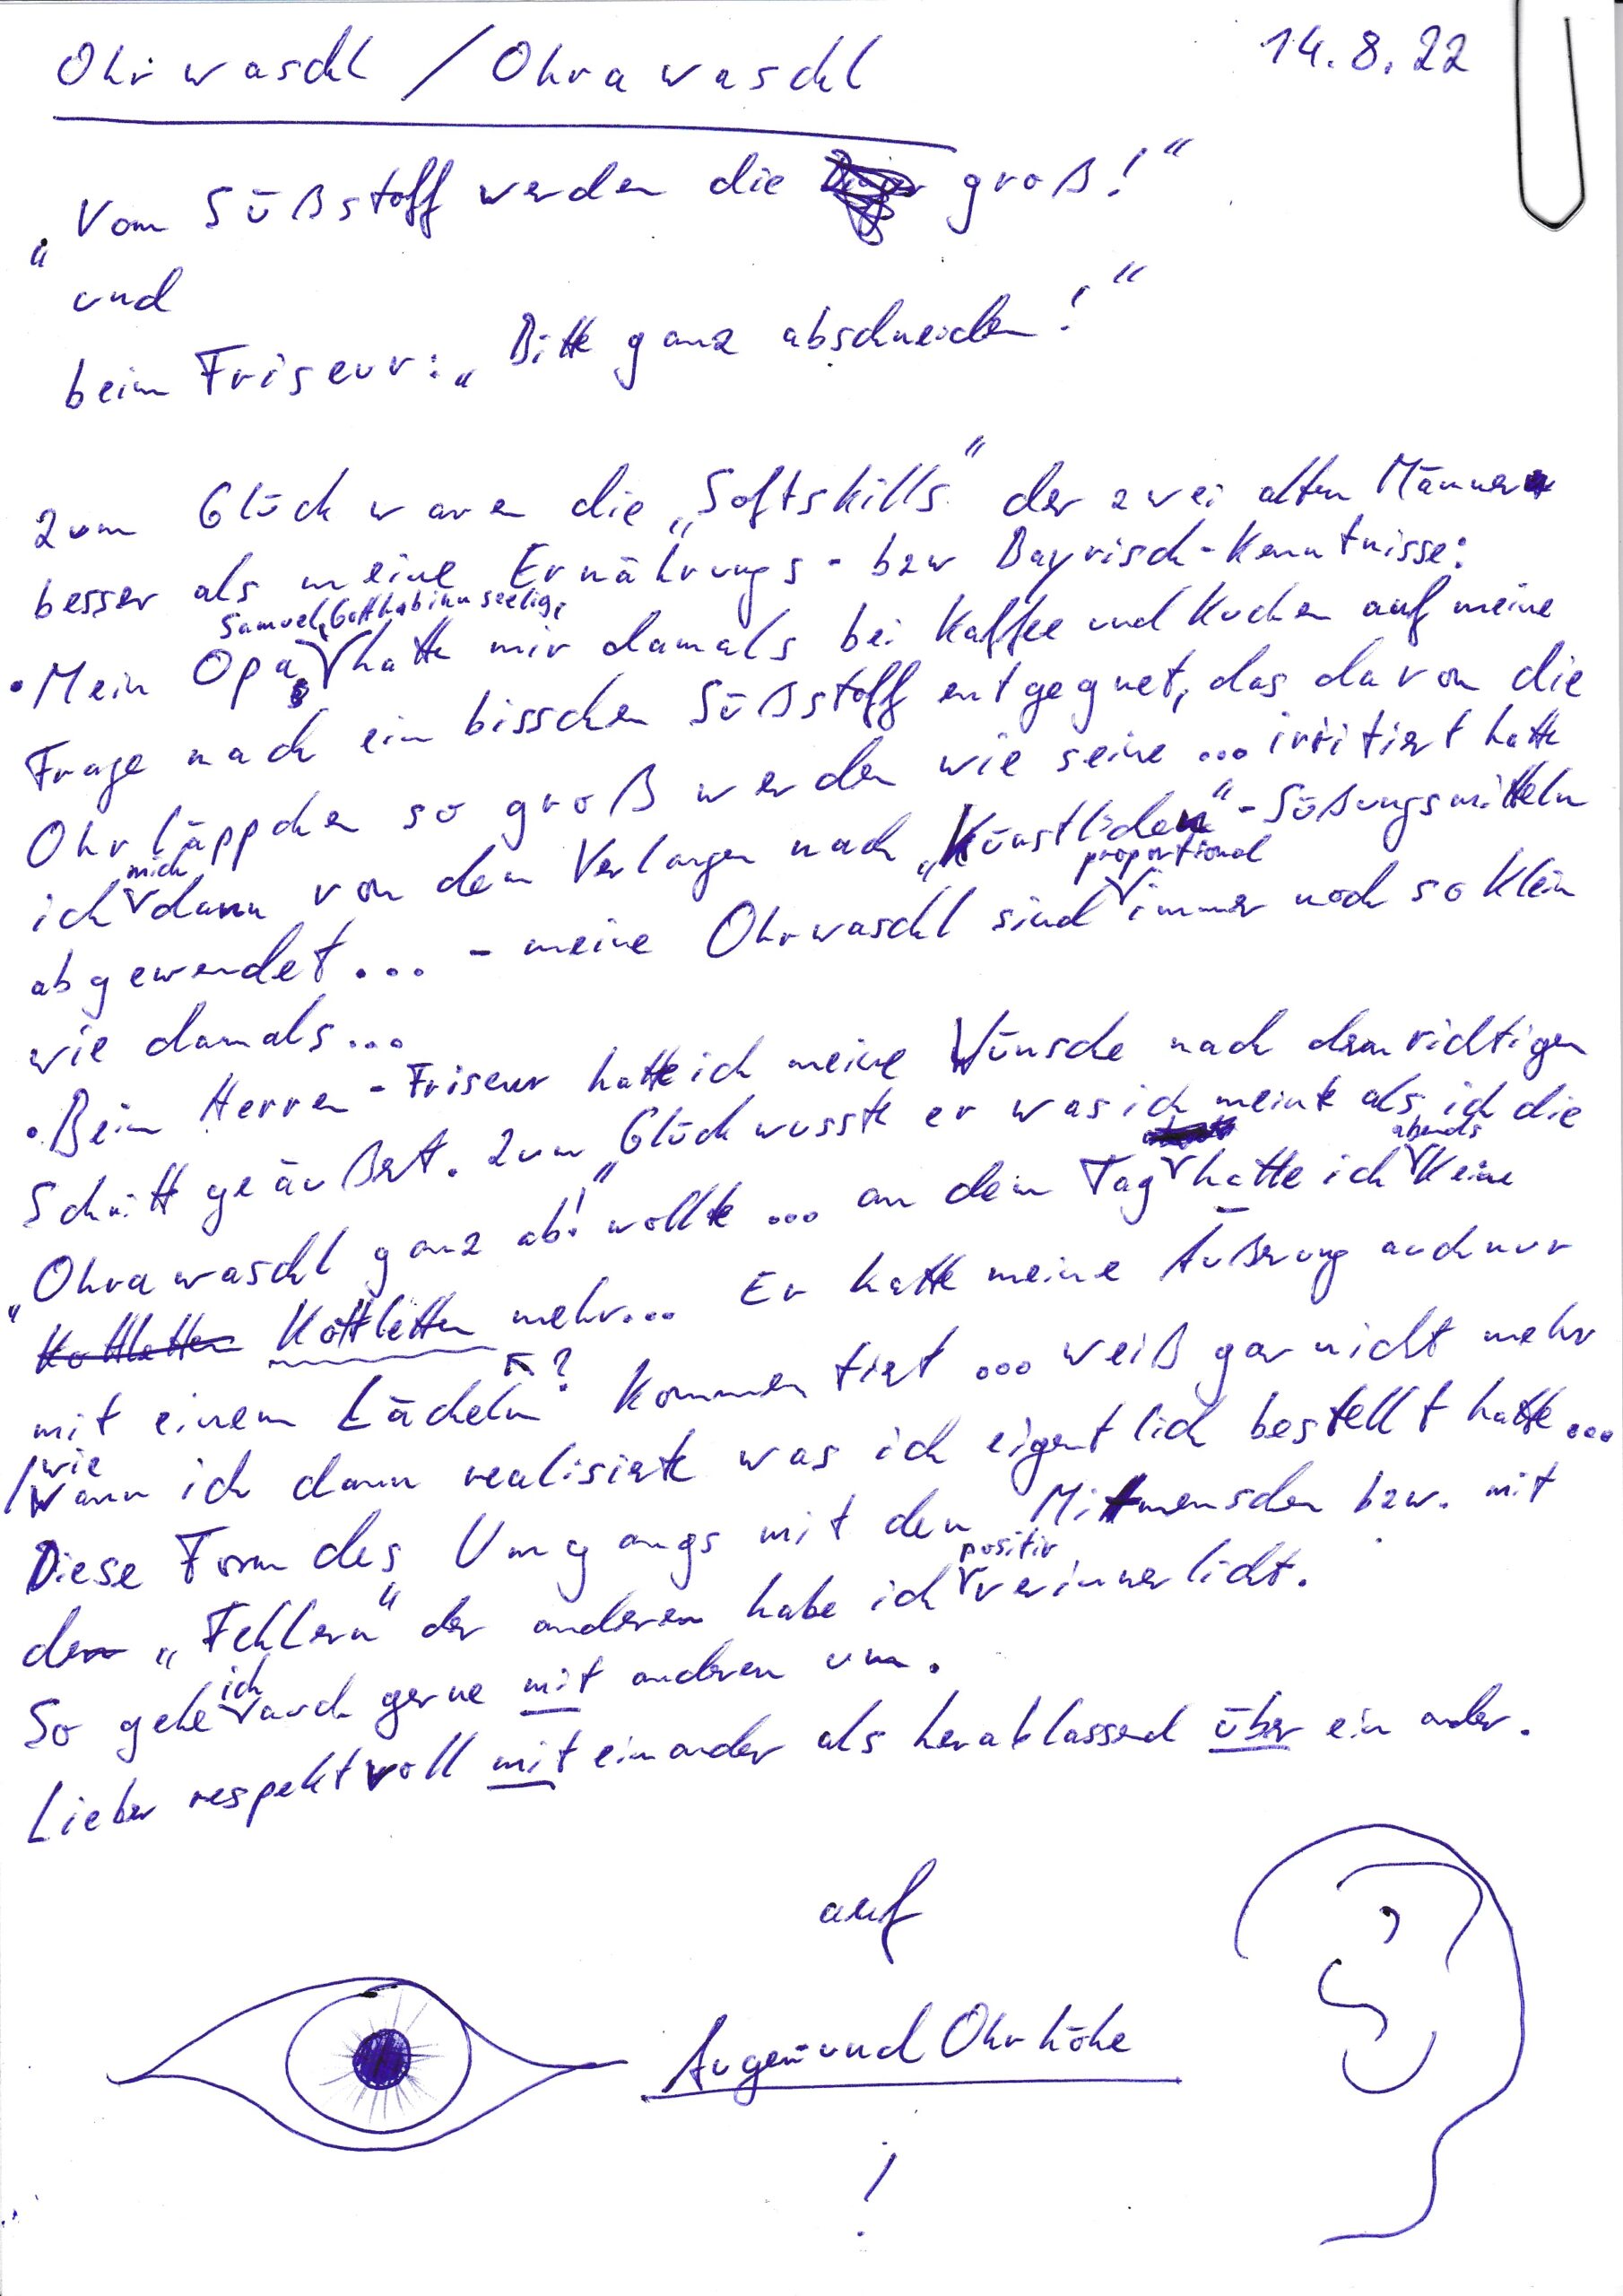 Ohrwaschl / Ohrawaschl
14.8.22
„Vom Süßstoff werden die groß!“
und
beim Friseur: „Bitte ganz abschneiden!“
Zum Glück waren die „Softskills“ der zwei alten Männer
besser als meine Ernährungs- bzw Bayrisch-Kenntnisse:
• Mein Opa Samuel, Gott hab ihn seelig, hatte mir damals bei Kaffee und Kuchen auf meine
Frage nach ein bisschen Süßstoff entgegnet, das davon die
Ohrläppchen so groß werden wie seine ... irritiert hatte
ich mich dann von dem Verlangen nach „Künstlichen“-Süßungsmitteln
abgewendet... - meine Ohrwaschl sind proportional immer noch so klein
wie damals...
• Beim Herren-Friseur hatte ich meine Wünsche nach dem richtigen
Schnitt geäußert. Zum Glück wusste er was ich meinte als ich die
„Ohrawaschl ganz ab!“ wollte ... an dem Tag hatte ich abends keine
Kottletten Kottletten mehr... Er hatte meine Äußerung auch nur
mit einem Lächeln? kommentiert ... weiß gar nicht mehr
/wie wann ich dann realisierte was ich eigentlich bestellt hatte...
Diese Form des Umgangs mit den Mitmenschen bzw. mit
den „Fehlern“ der anderen habe ich positiv verinnerlicht.
So gehe ich auch gerne mit anderen um.
Lieber respektvoll miteinander als herablassend über ein ander.
auf
Augen und Ohrhöhe
!